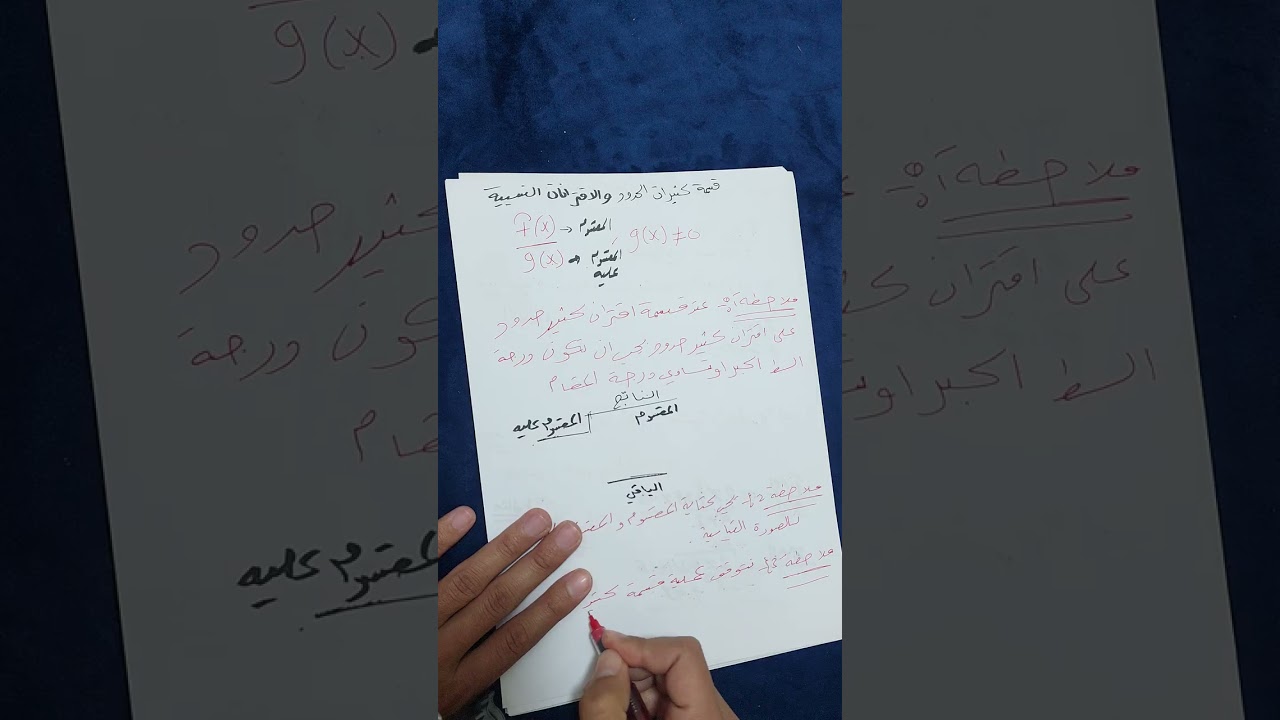 قسمة كثيرات الحدود والاقترانات النسبية
f(x) → المقسوم g(x) ≠ 0
g(x) → المقسوم
عليه
ملاحظة 1: عند قسمة اقتران كثير حدود
على اقتران كثير حدود يجب ان تكون درجة
البسط اكبر او تساوي درجة المقام
الناتج
المقسوم عليه المقسوم
الباقي
ملاحظة 2: يجب كتابة المقسوم و
بالصورة القياسية.
ملاحظة 3: تتوقف عملية قسمة كثير